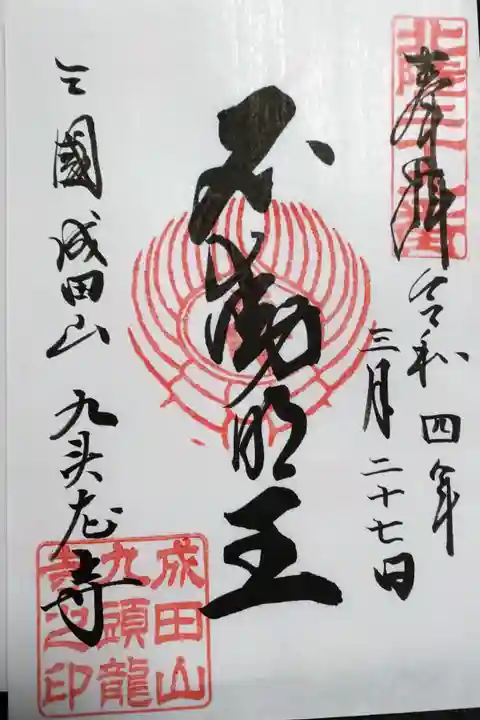 奉拝
令和四年
三月二十七日
不動明王
三國成田山 九头龙寺
成田山
九頭龍
寺之印